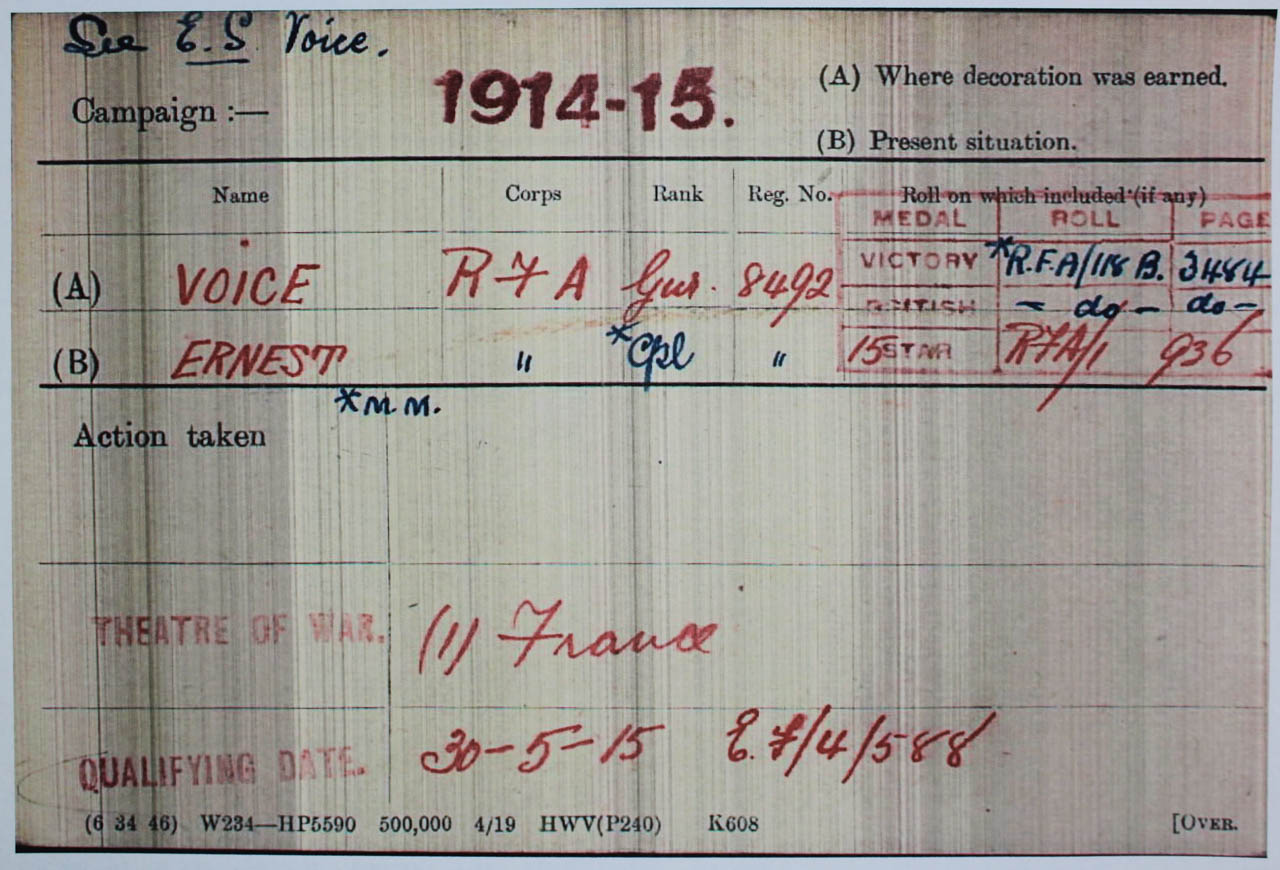 See E.S. Voice.
Campaign :— 1914-15. (A) Where decoration was earned.
(B) Present situation.
Name Corps Rank Reg. No. Roll on which included (if any)
MEDAL ROLL PAGE
(A) VOICE R F A Gnr. 8492 VICTORY *R.F.A/118 B. 3484
BRITISH - do - do -
(B) ERNEST " *Cpl " 15 STAR RFA/1 936
*M.M.
Action taken
THEATRE OF WAR. (1) France
QUALIFYING DATE. 30-5-15 E.F/4/588
(6 34 46) W234—HP5590 500,000 4/19 HWV(P240) K608 [OVER.